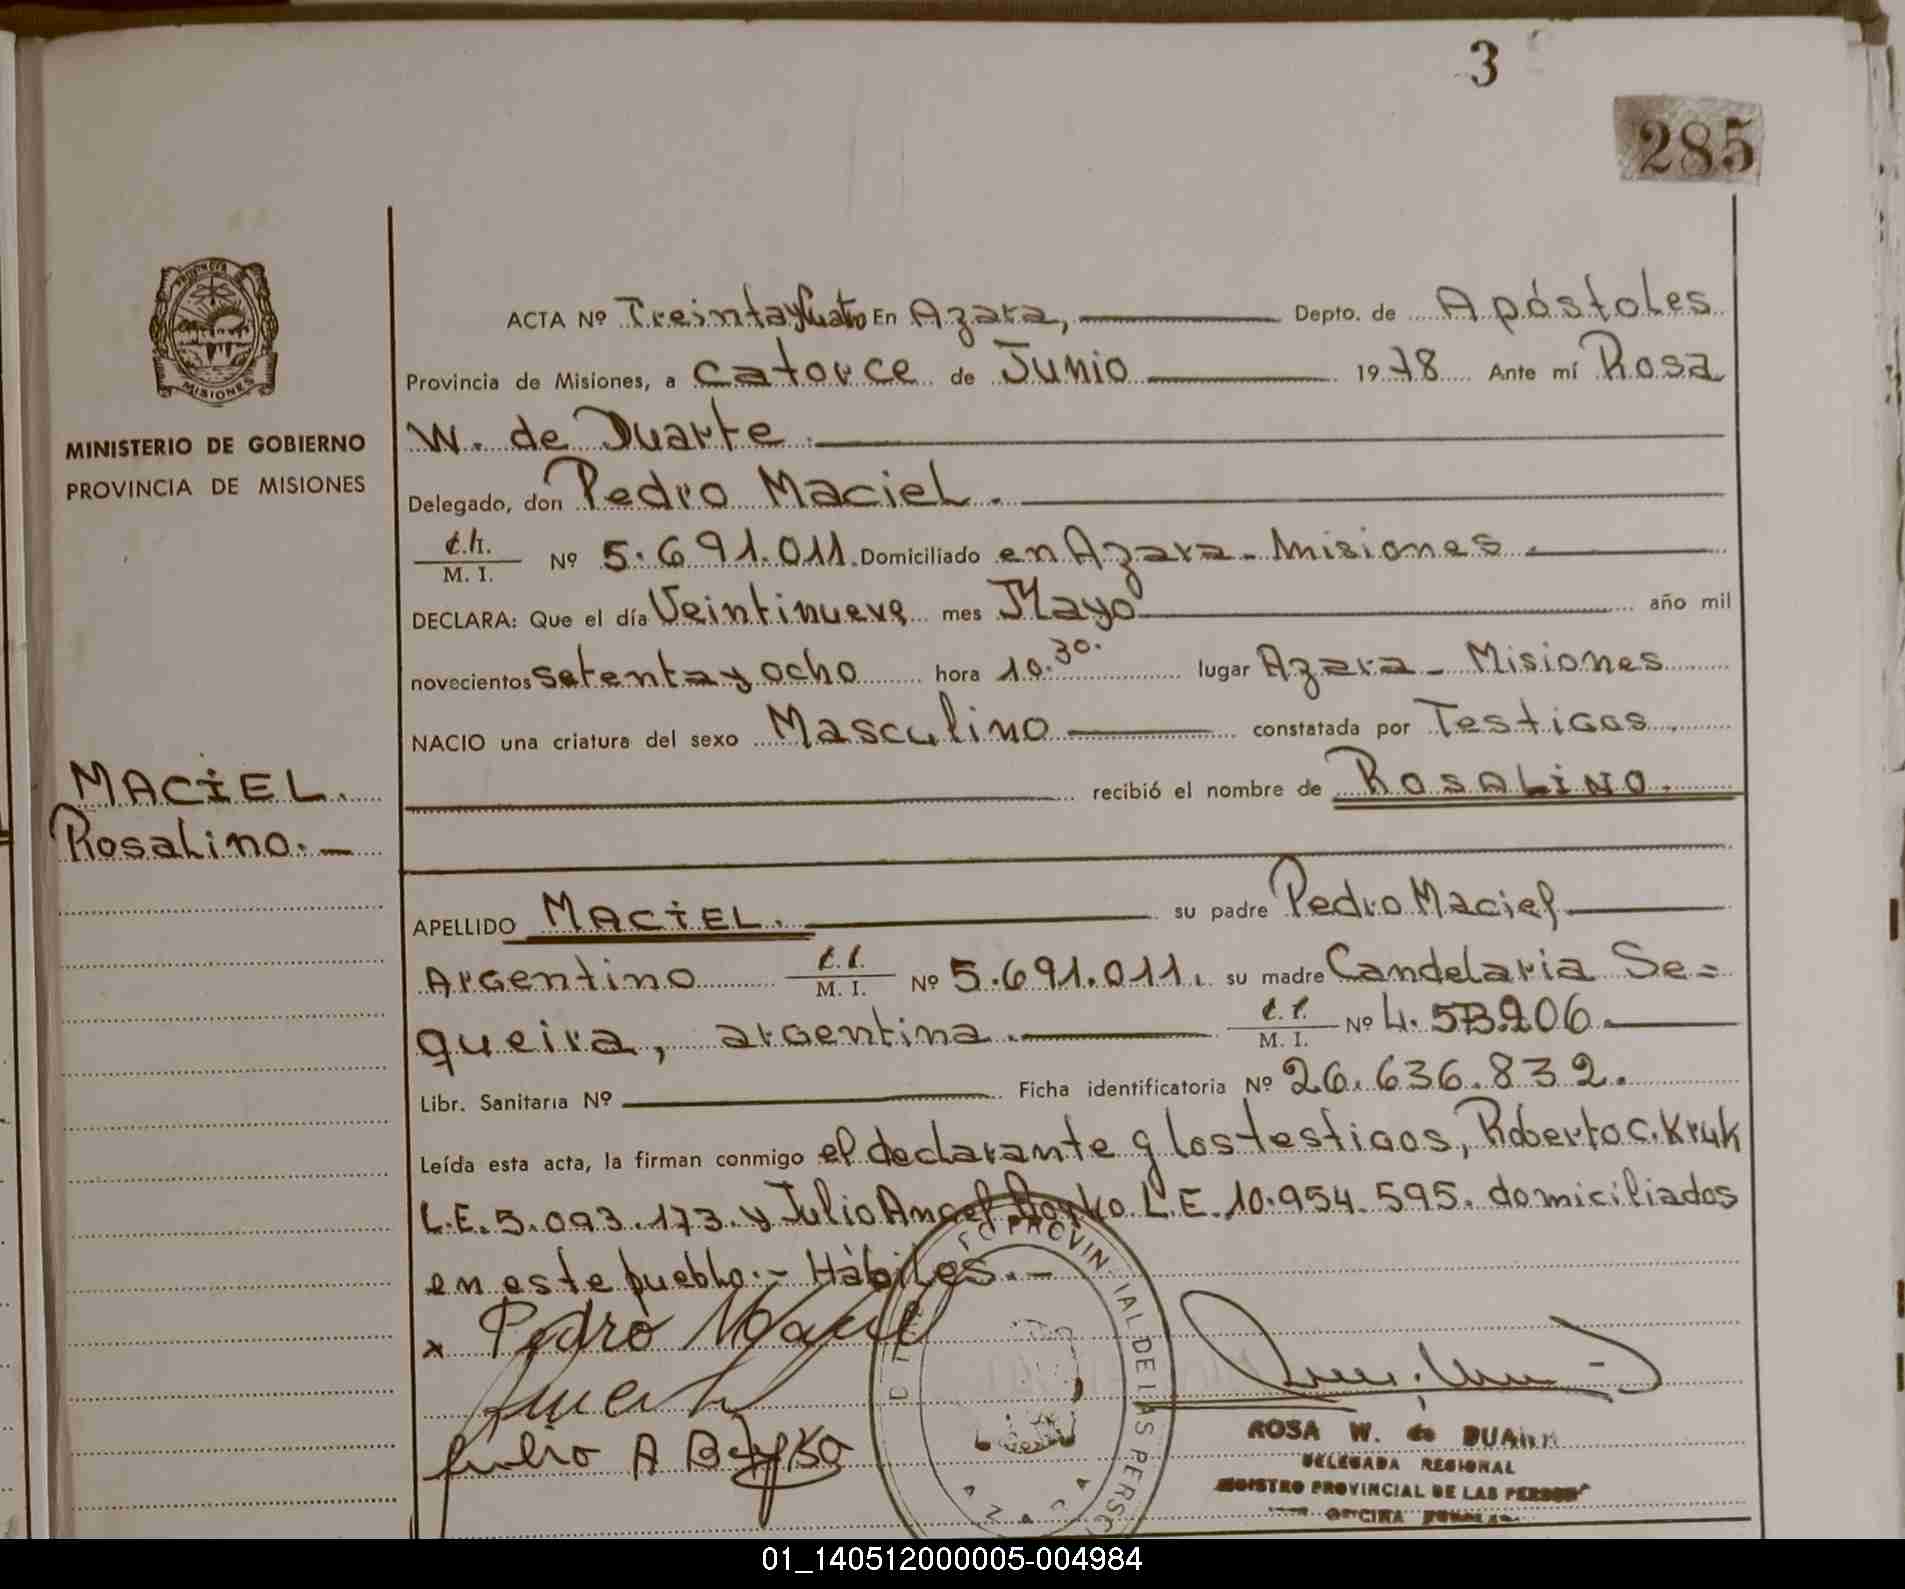 3
285
ACTA Nº Treinta y Cuatro En Azara, Depto. de Apóstoles
Provincia de Misiones, a catorce de Junio 1978 Ante mí Rosa
W. de Duarte.
MINISTERIO DE GOBIERNO
PROVINCIA DE MISIONES
Delegado, don Pedro Maciel.
M. I. Nº 5.691.011. Domiciliado en Azara - Misiones
DECLARA: Que el día Veintinueve mes Mayo año mil
novecientos setenta y ocho hora 10.30. lugar Azara - Misiones
NACIO una criatura del sexo Masculino constatada por Testigos
MACIEL.
Rosalino.-
recibió el nombre de ROSALINO.
APELLIDO MACIEL. su padre Pedro Maciel
Argentino M. I. Nº 5.691.011. su madre Candelaria Se=
queira, argentina. M. I. Nº 4.
Libr. Sanitaria Nº Ficha identificatoria Nº 26.636.832.
Leída esta acta, la firman conmigo el declarante y los testigos, Roberto C. Kruk
L.E. 5.093.173. y Julio Angel L.E. 10.954.595. domiciliados
en este pueblo.- Hábiles.-
x Pedro Maciel
Julio A
PROVINCIAL DE LAS PERSO
AZARA
ROSA W. de DUARTE
DELEGADA REGIONAL
REGISTRO PROVINCIAL DE LAS PERSON
OFICINA
01_140512000005-004984